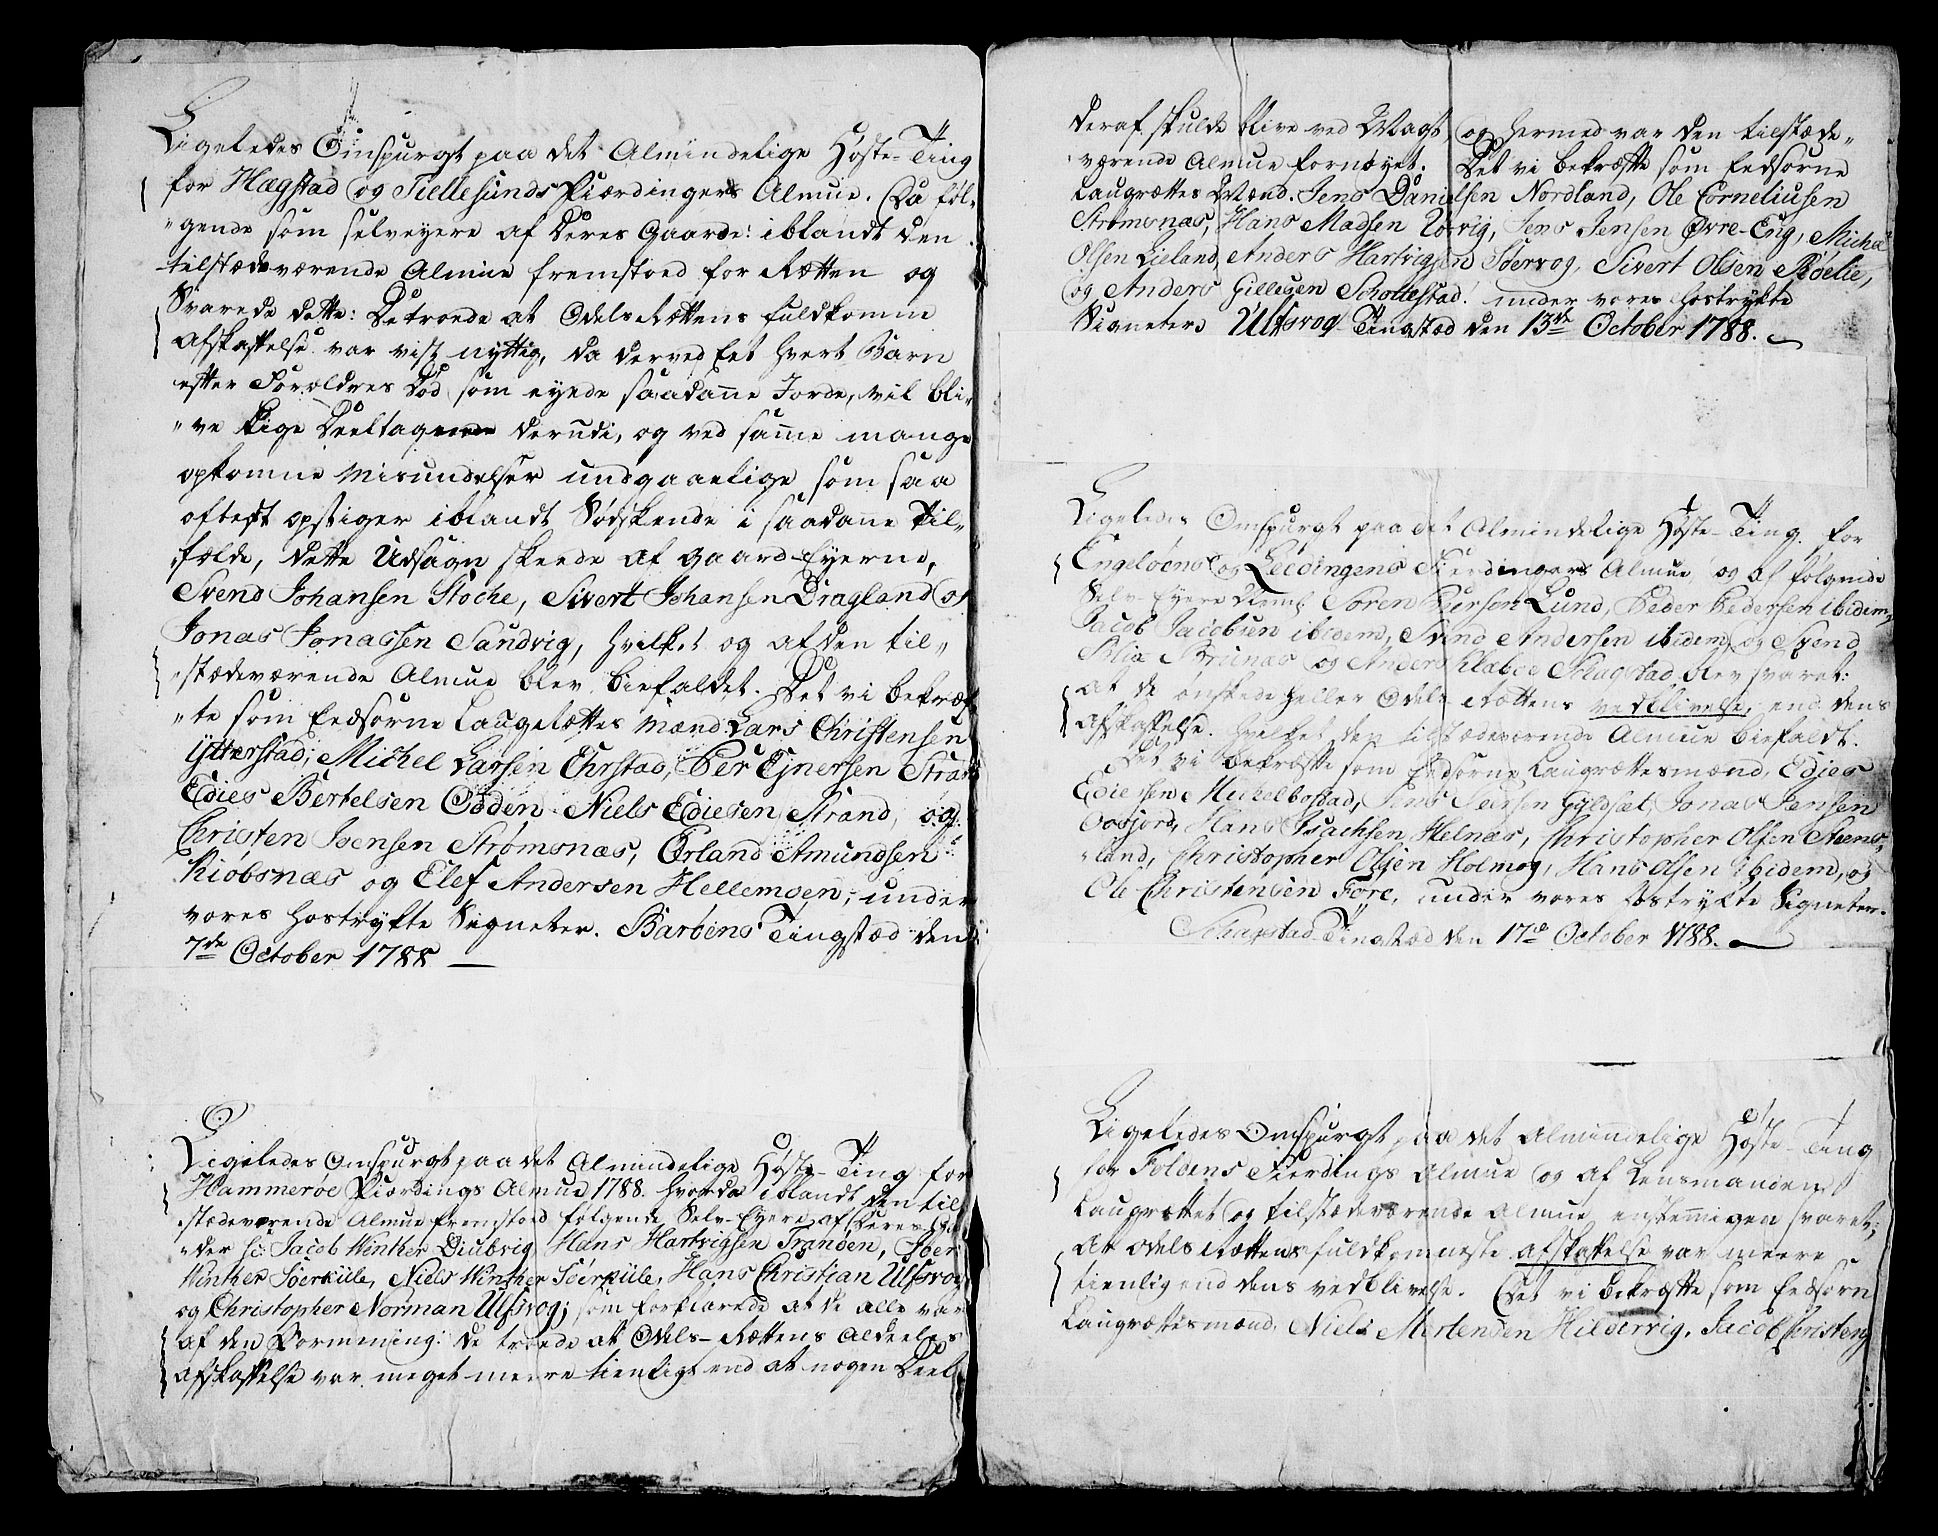 Ligeledes Omspurgt paa det Almindelige Høste-Ting
for Hægstad og Tiellesunds Fiærdingers Almue. Da føl-
"gende som selveyere af Deres Gaarde: iblandt den
tilstædeværende Almue fremstoed for Rætten og
Svarede dette: De troede at Odels Rættens fuldkomne
Afskaffelse var vist nyttig, da derved Eet hvert Barn
efter Forældres Død, som eyede saadanne Jorde, vil bli-
"ve lige Deeltagende derudi, og ved samme mange
opkomne Misundelser undgaaelige som saa
oftest opstiger iblandt Sødskende i saadanne Til-
fælde, dette Udsagn skeede af Gaard-Eyerne,
Svend Johansen Stoche, Sivert Johansen Dragland og
Jonas Jonassen Sandvig, hvilket og af den til-
"stædeværende Almue blev biefaldet. Det vi bekræf
"te som Eedsorne Laugrættes Mænd: Lars Christensen
Ytterstad, Michel Larsen Ehrstad, Per Ejnersen Strand
Edies Bertelsen Odden. Niels Ediesen Strand, og
Christen Ivensen Strømsnæs, Erland Amundsen
Kiøbsnæs og Elef Andersen Hellemoen, under
vores hostrykte Signeter. Barøens Tingstæd den
7de October 1788 —
Ligeledes Omspurgt paa det Almindelige Høste-Ting for
Hammerøe Fiærdings Almue 1788. hvorda iblandt den til
stædeværende Almue fremstoed følgende Selv-Eyere af Deres Gaar
"der Sc: Jacob Winther Diubvig, Hans Hartvigsen Tranøen, Peer
Winther Søerkiile, Niels Winther Søerkiile, Hans Christian Ulfsvog
og Christopher Norman Ulfsvog; som forklarede at de alle var
af den Formening: de troede at Odels-Rættens Aldeeles
Afskaffelse var meget meere tienligt end at nogen Deel
deraf skulde blive ved Magt, og hermed var den tilstæde-
værende Almue fornøyet. Det vi bekræfte som Eedsorne
Laugrættes Mænd. Jens Danielsen Nordland, Ole Corneliusen
Strømsnæs, Hans Madsen, Jens Jensen Øvre-Eng, Michel
Olsen Lieland, Anders Hartvigsen Søervog, Sivert Olsen Røelie,
og Anders Gillegen Skottestad! under vores hostrykte
Signetere Ulfsvog Tingstæd den 13de October 1788.
Ligeledes Omspurgt paa det Almindelige Høste-Ting for
Engeløens og Leedingens Fierdingers Almue og af følgende
Selv-Eyere Sören Peersen Lund, Peder Pedersen ibidem,
Jacob Jacobsen ibidem, Svend Andersen ibidem, og Svend
og Anders Skagstad blev svaret:
at de ønskede heller Odels Rættens vedblivelse, end dens
Afskaffelse. hvilket den tilstædeværende Almue biefaldt.
Det vi bekræfte som Eedsorne Laugrættesmænd, Edjes
Ediesen Michelbostad, Jens Peersen Gyldset, Jonas Jensen
Hans Isachsen Helnæs, Christopher Olsen Steens-
"land, Christopher Olsen Holmog, Hans Olsen ibidem, og
Ole Christensen Fore, under vores hostrykte Signeter.
Skagstad Tingstæd den 17de October 1788.
Ligeledes Omspurgt paa det Almindelige Høste-Ting
for Foldens Fierdings Almue og af Lensmanden
Laugrættet og tilstædeværende Almue enstemmigen svaret;
At Odels Rættens fuldkomneste afskaffelse var meere
tienlig end dens vedblivelse. Det vi bekræfte som Eedsorn
Laugrættesmænd. Niels Mortensen Hildervig. Jacob Christens